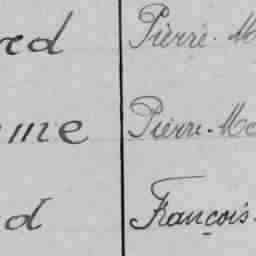 red Pierre-M
me Pierre-Ma
d François-